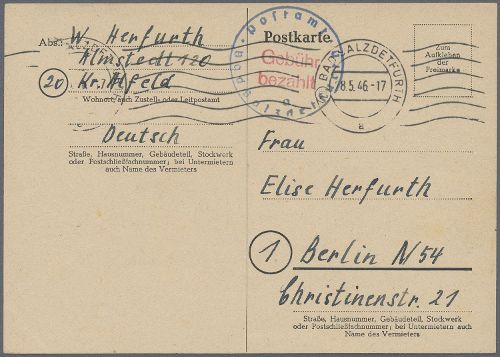 Abs.: W. Herfurth
Almstedt 120
20 Kr. Alfeld
Wohnort, auch Zustell- oder Leitpostamt
Deutsch
Straße, Hausnummer, Gebäudeteil, Stockwerk
oder Postschließfachnummer; bei Untermietern
auch Name des Vermieters
Postkarte
Postamt
Gebühr
bezahlt
BAD SALZDETFURTH
18.5.46-17
a
Zum
Aufkleben
der
Freimarke
Frau
Elise Herfurth
1 Berlin N54
Christinenstr. 21
Straße, Hausnummer, Gebäudeteil, Stockwerk
oder Postschließfachnummer; bei Untermietern
auch Name des Vermieters